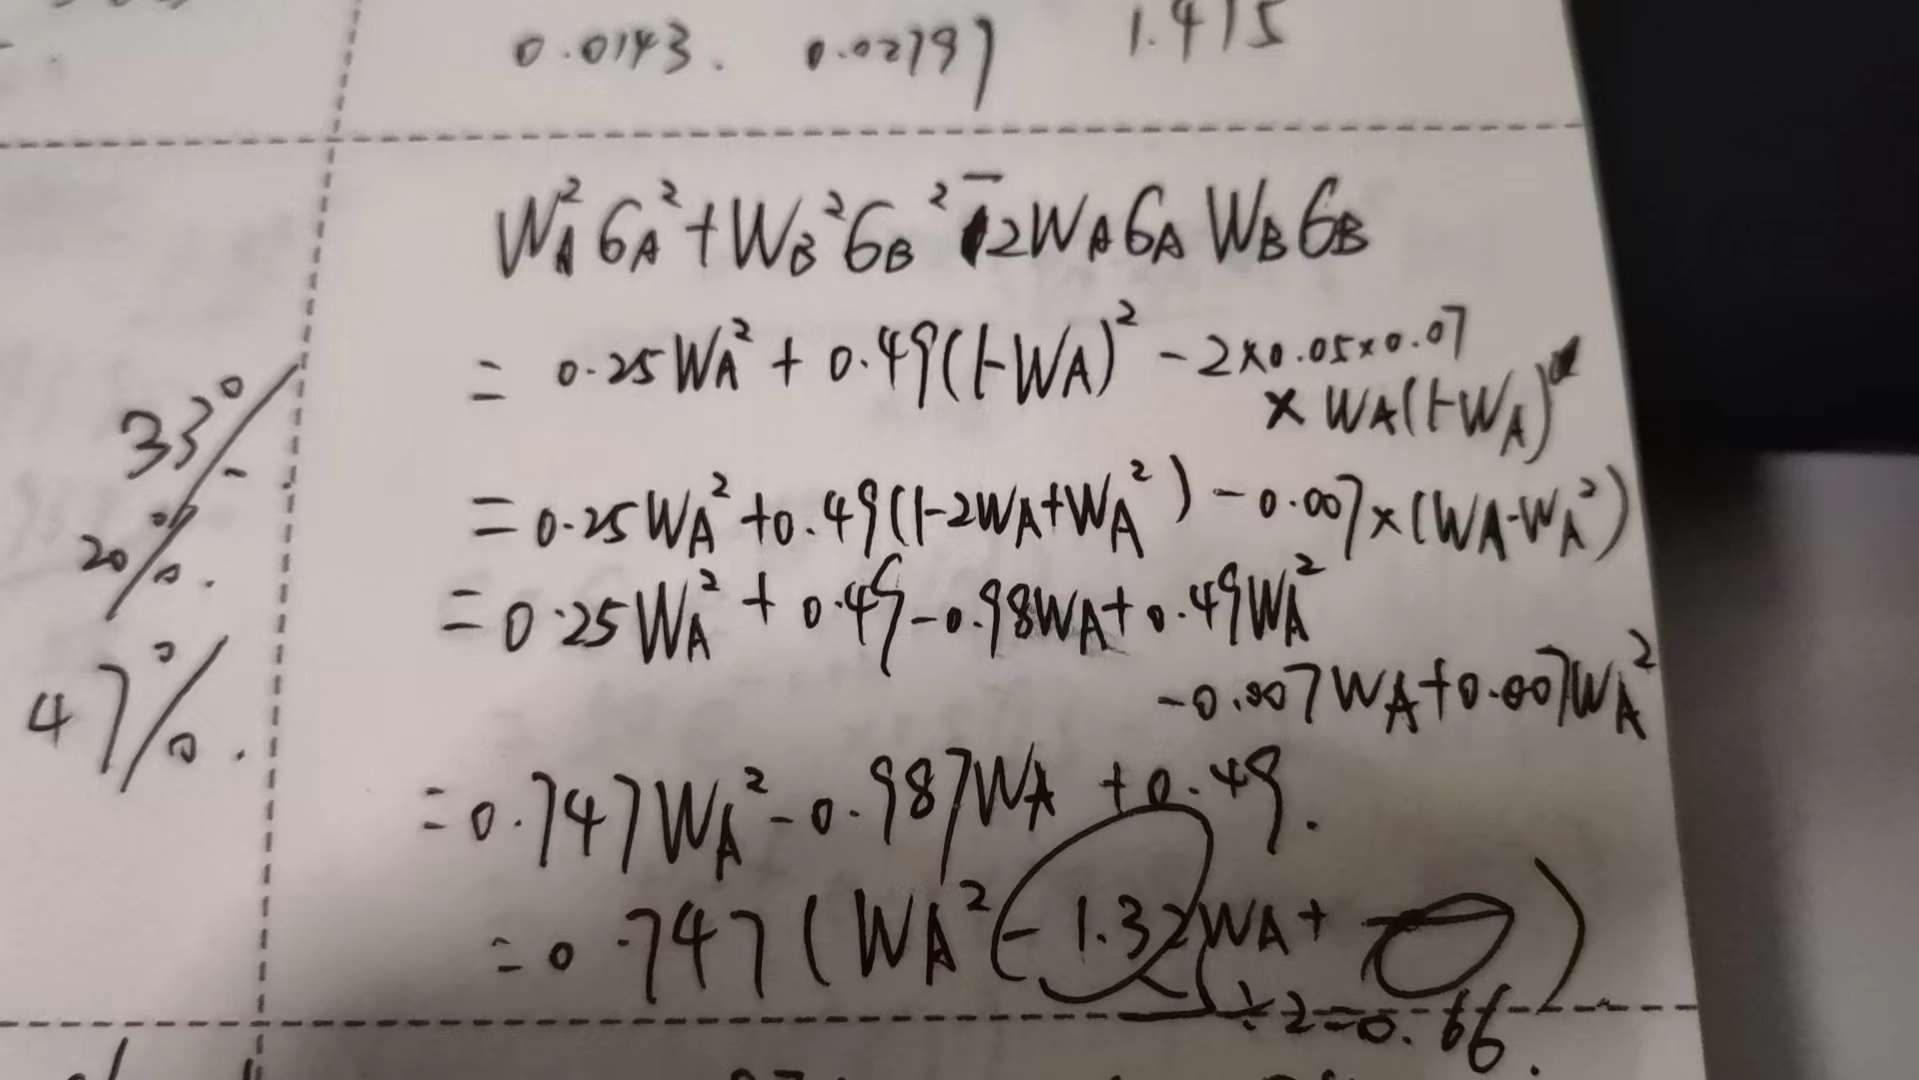 0.0143. 0.02797 1.415
W_A²σ_A² + W_B²σ_B² - 2W_Aσ_A W_Bσ_B
= 0.25W_A² + 0.49(1-W_A)² - 2×0.05×0.07
× W_A(1-W_A)
= 0.25W_A² + 0.49(1-2W_A+W_A²) - 0.007×(W_A-W_A²)
= 0.25W_A² + 0.49 - 0.98W_A + 0.49W_A²
- 0.007W_A + 0.007W_A²
= 0.747W_A² - 0.987W_A + 0.49.
= 0.747(W_A² - 1.32W_A + )
÷2=0.66.
33%
20%.
47%.